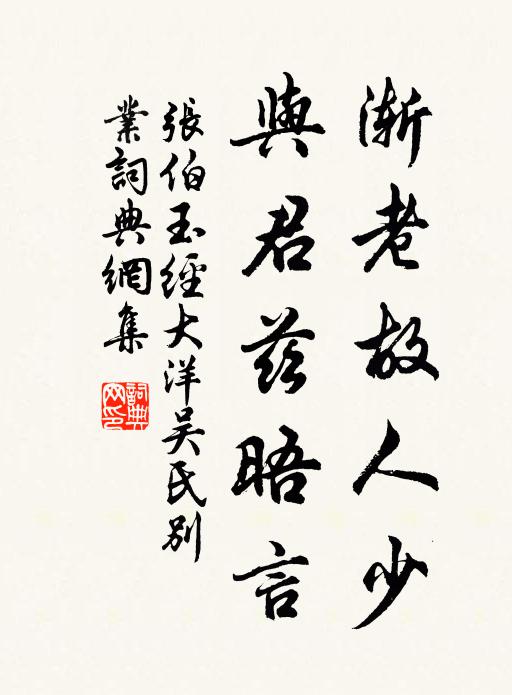 漸老故人少
與君茲晤言
張伯玉經大洋吳氏別
業詞典網集
詞典
网印